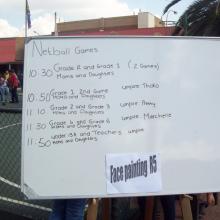 Netball Games
10:30 Grade R and Grade 1 (2 Games)
Moms and Daughters
10:50 Grade 1, 2nd Game umpire Thoko
Moms and Daughters
11:10 Grade 2 and Grade 3 umpire
Moms and Daughters
11:30 Grade 4 and Grade 5 umpire
Moms and Daughters
11:50 under 13A and Teachers umpire
Moms and Daughters
Face painting R5